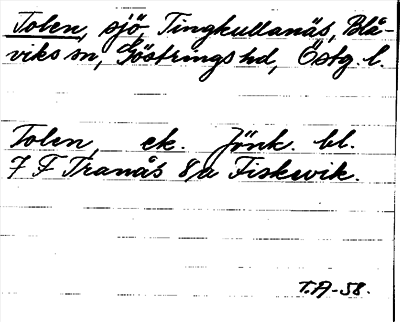 Tolen, sjö, Tingkullanäs, Blå-
viks sn, Göstrings hd, Östg. l.
Tolen, ek. Jönk. bl.
7 F Tranås 8a Fiskevik.
T.A-58.